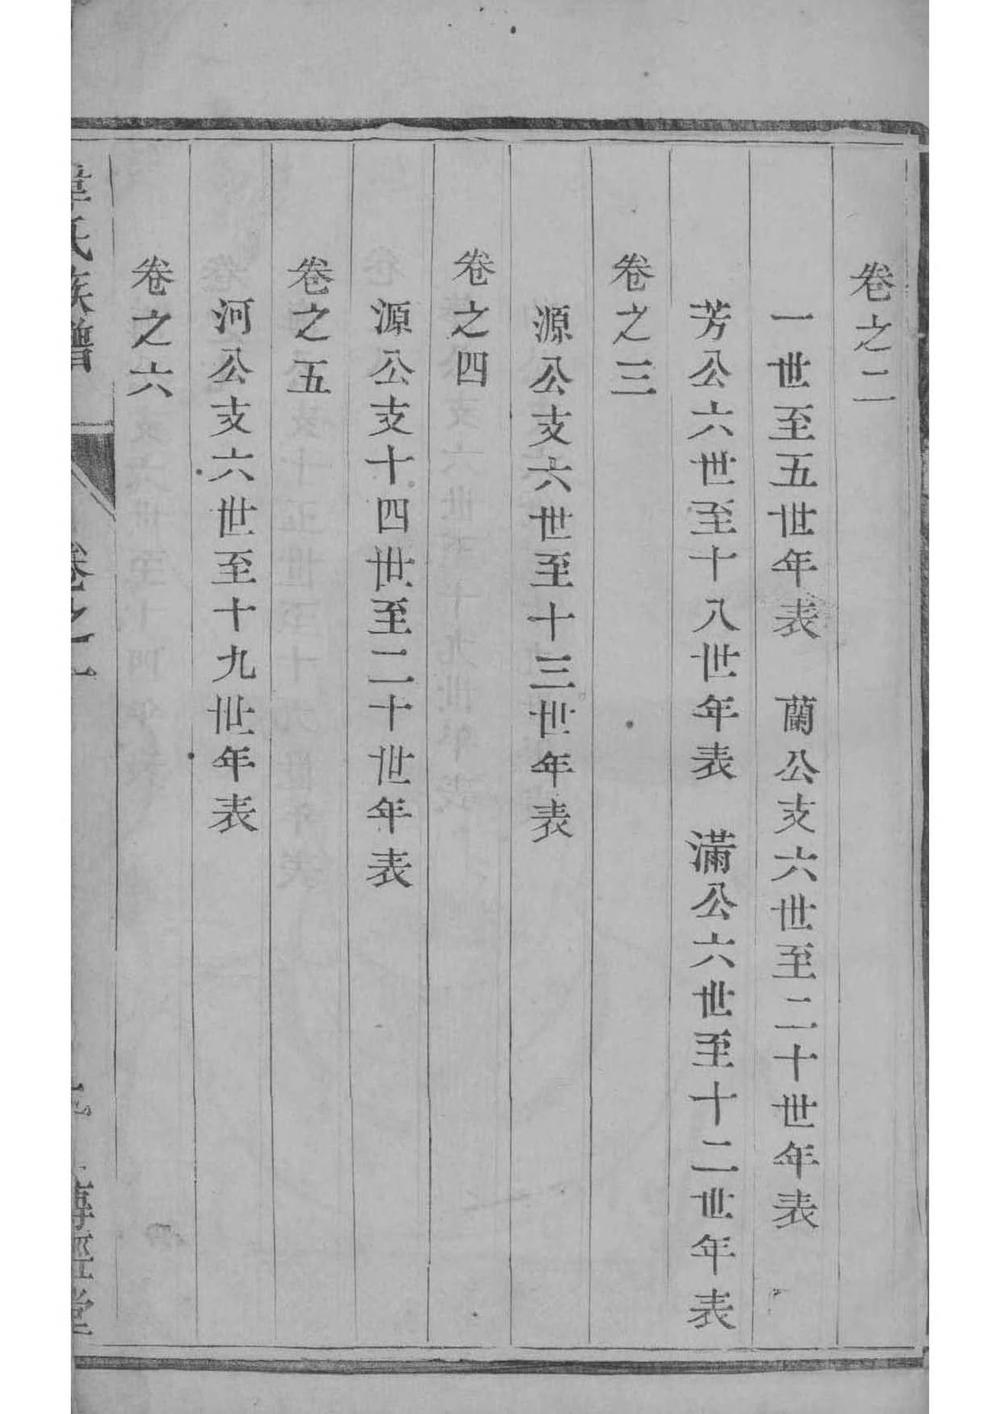 卷之二
一世至五世年表　蘭公支六世至二十世年表
芳公六世至十八世年表　滿公六世至十二世年表
卷之三
源公支六世至十三世年表
卷之四
源公支十四世至二十世年表
卷之五
河公支六世至十九世年表
卷之六
韋氏族譜　卷之一　傳經堂